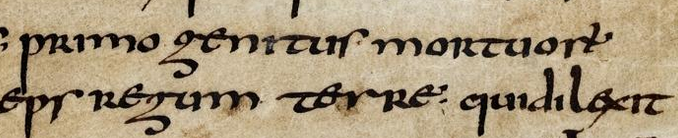 primo genitus mortuoꝝ
eps regum terre. qui dilexit